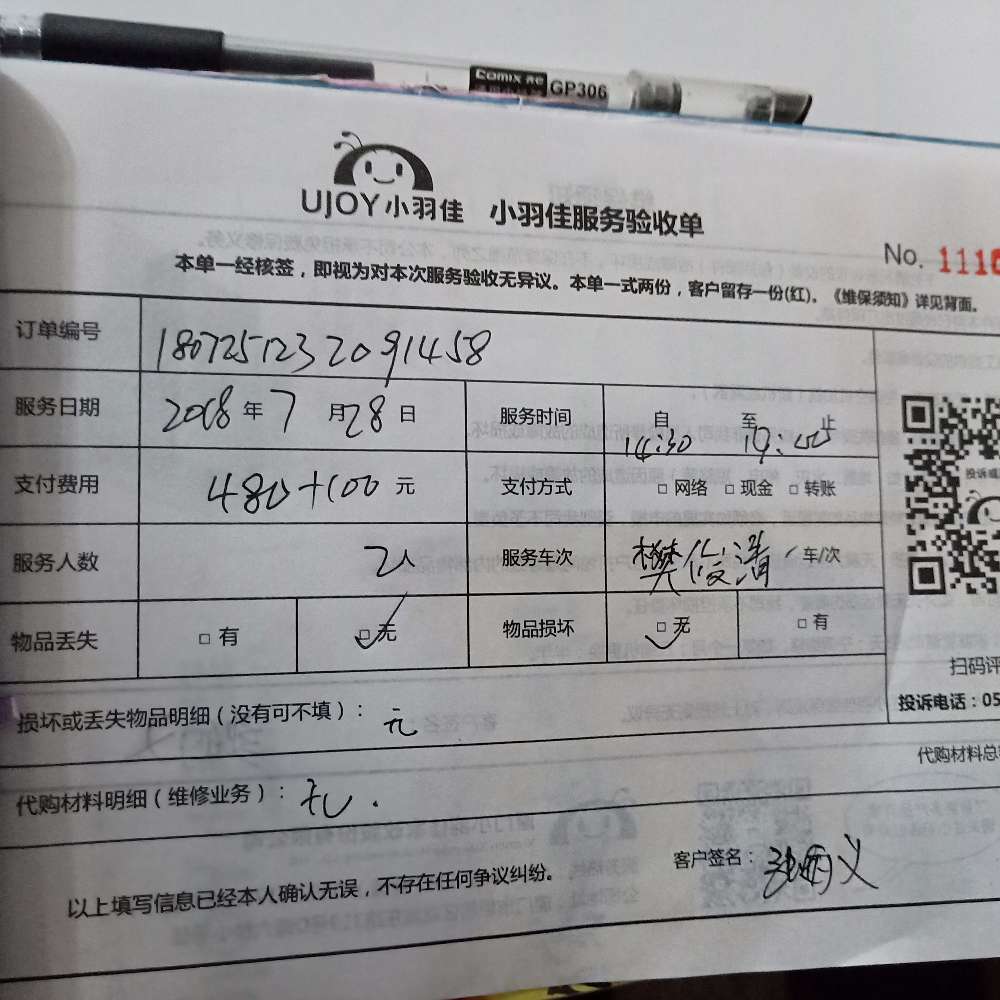 Comix 齐心
GP306
UJOY小羽佳 小羽佳服务验收单
No. 1116
本单一经核签，即视为对本次服务验收无异议。本单一式两份，客户留存一份(红)。《维保须知》详见背面。
订单编号 1807251232091458
服务日期 2018年7月28日 服务时间 自 14:30 至 17:00 止
支付费用 480+100元 支付方式 □网络 □现金 □转账
服务人数 2人 服务车次 樊俊清 车/次
物品丢失 □有 □无 物品损坏 □无 □有
投诉或
扫码评
投诉电话：05
损坏或丢失物品明细（没有可不填）： 无
代购材料总
代购材料明细（维修业务）： 无.
以上填写信息已经本人确认无误，不存在任何争议纠纷。
客户签名：